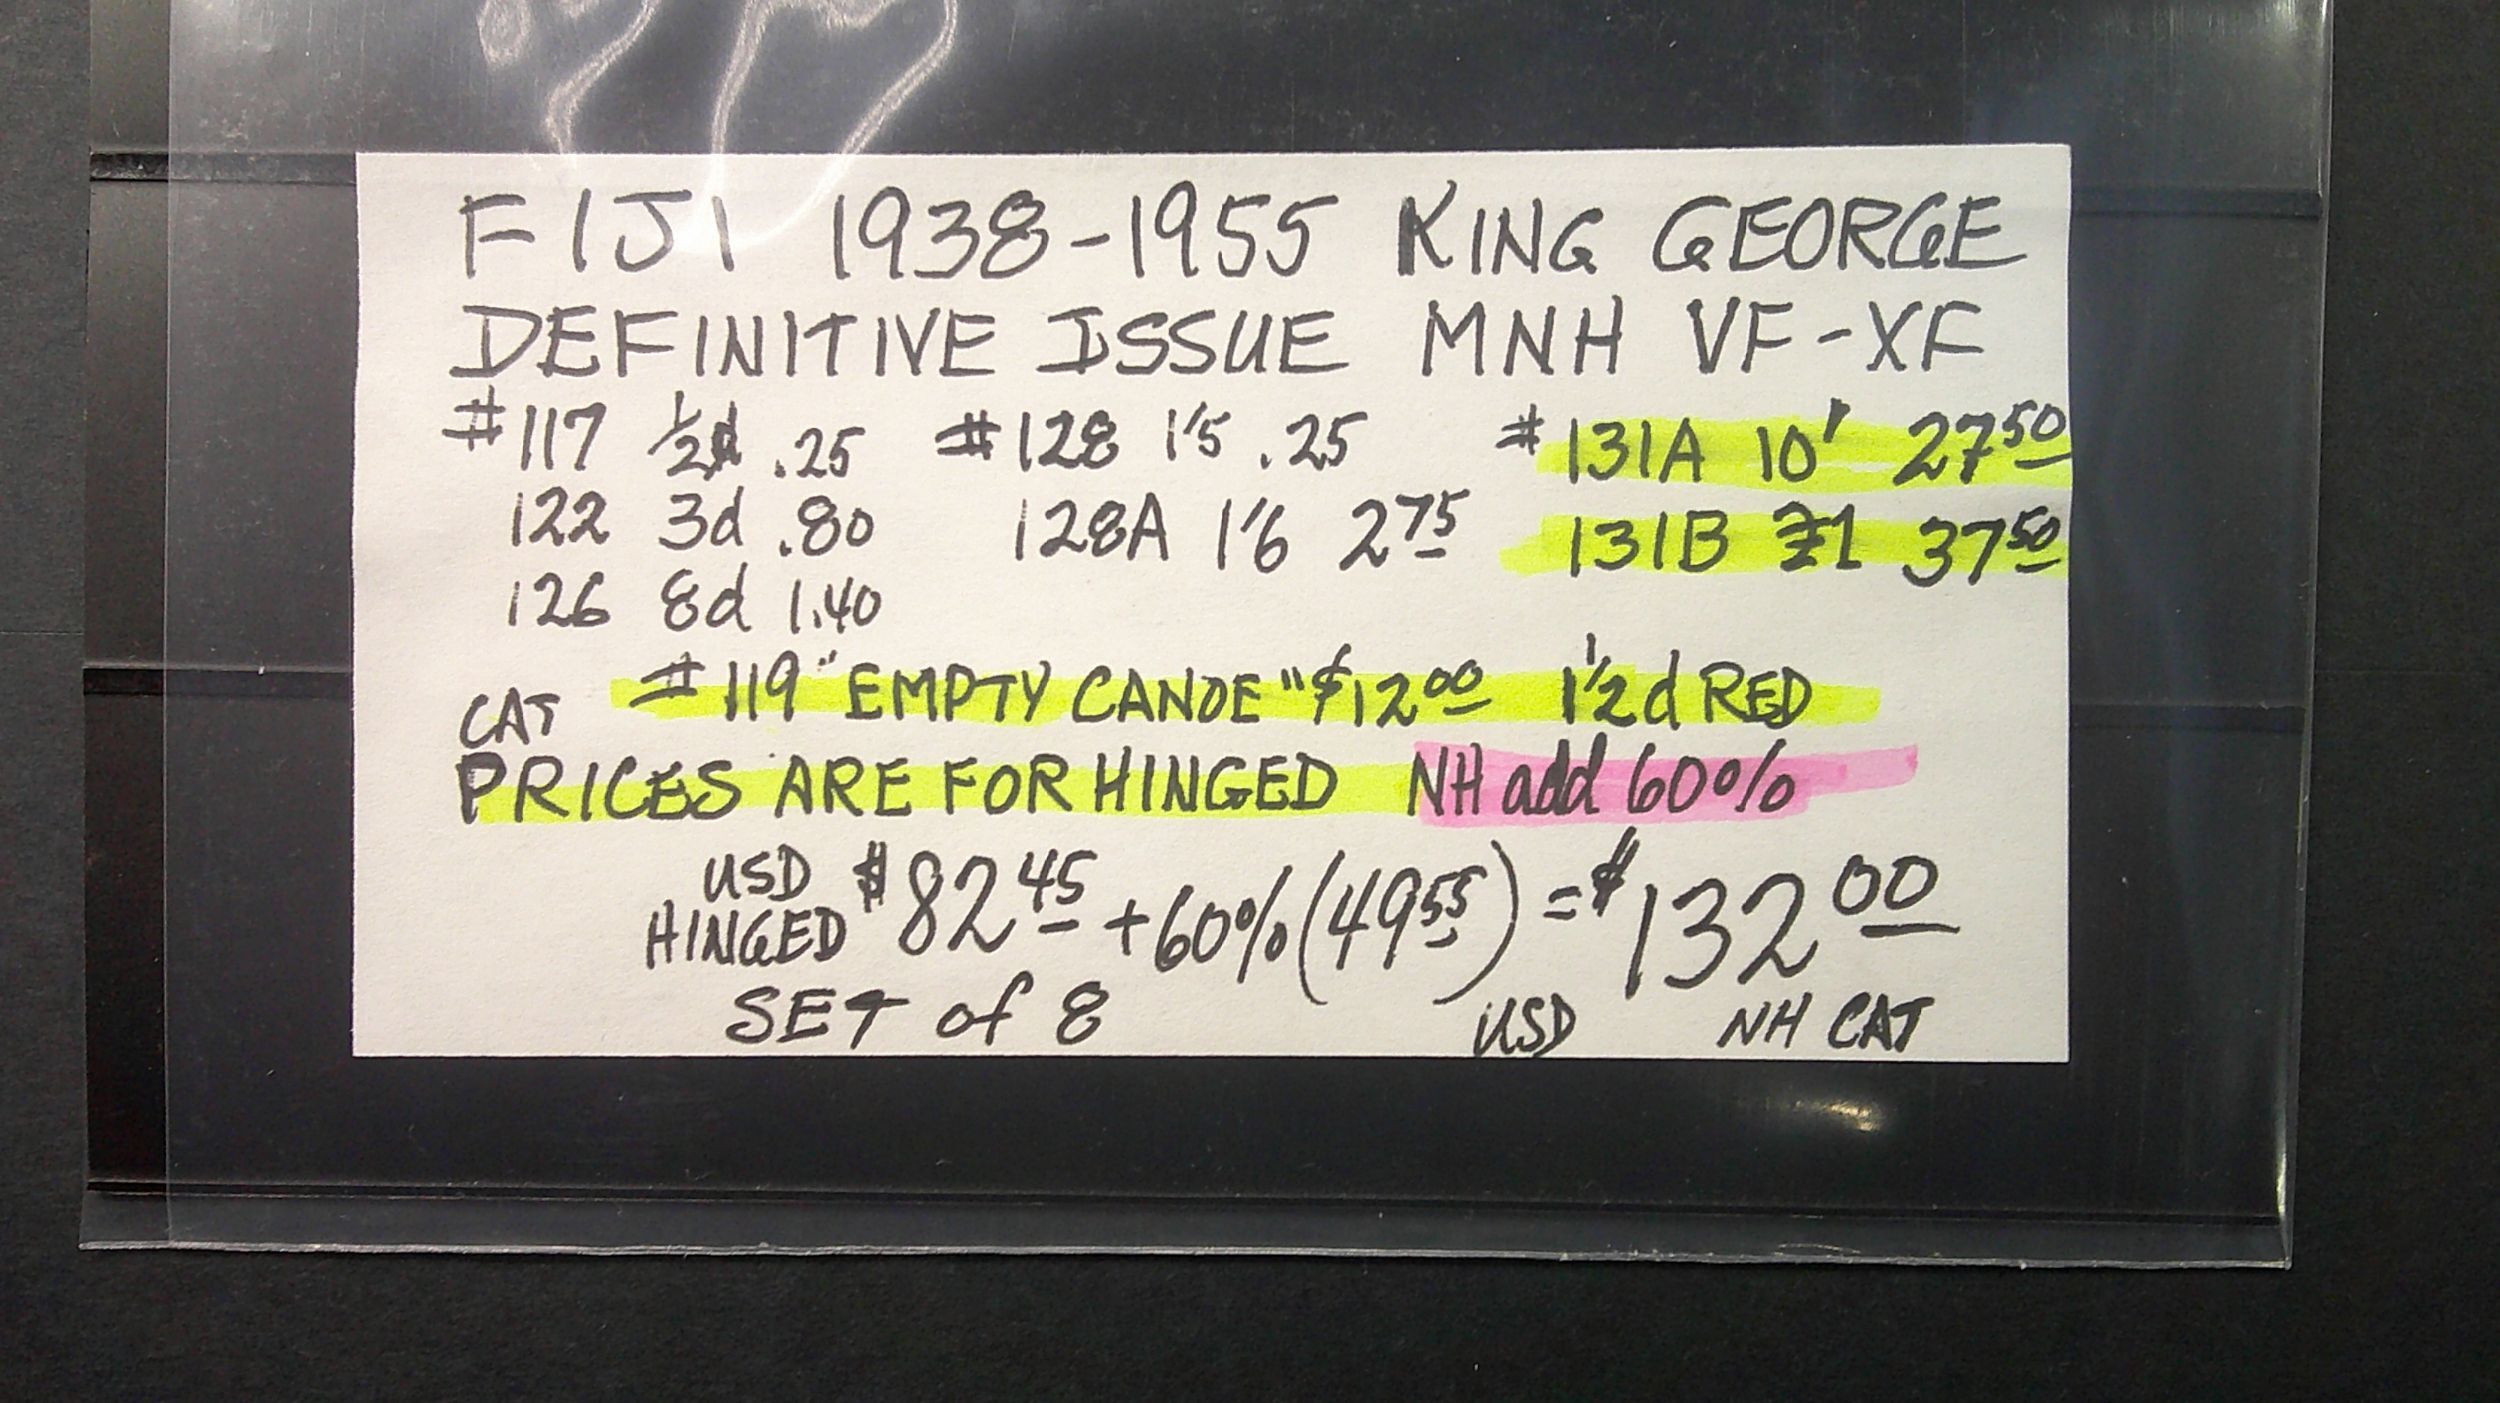 FIJI 1938-1955 KING GEORGE
DEFINITIVE ISSUE MNH VF-XF
#117 1/2d .25 #128 1'5 .25 #131A 10' 27 50
122 3d .80 128A 1'6 2 75 131B £1 37 50
126 8d 1.40
#119 "EMPTY CANOE" $12 00 1 1/2d RED
CAT
PRICES ARE FOR HINGED NH add 60%
USD HINGED $82 45 + 60% (49 55) = $132 00
SET of 8 USD NH CAT